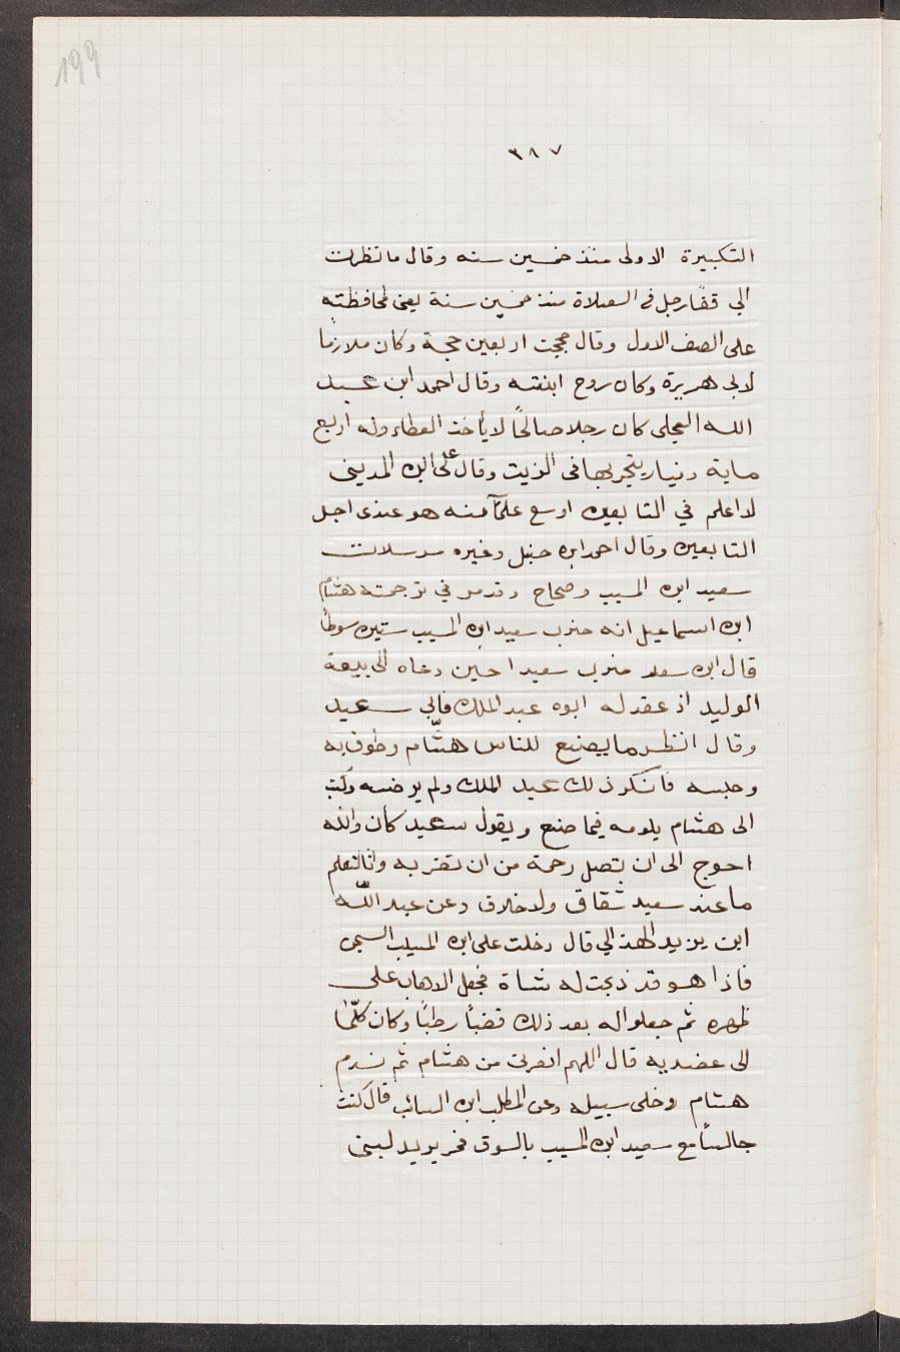 199
٣٨٧
التكبيرة الاولى منذ خمسين سنه وقال ما نظرت
الي قفا رجل في الصلاة منذ خمسين سنة يعنى لمحافظته
على الصف الاول وقال حججت اربعين حجة وكان ملازمًا
لابى هريرة وكان زوج ابنته وقال احمد ابن عبد
الله العجلى كان رجلا صالحًا لا يأخذ العطاء وله اربع
ماية دنيار يتجر بها فى الزيت وقال على ابن المدينى
لا اعلم في التابعين اوسع علمًا منه هو عندى اجل
التابعين وقال احمد ابن حنبل وغيره مرسلات
سعيد ابن المسيب وصحاح وقد مر في ترجمته هشام
ابن اسماعيل انه ضرب سعيد ابن المسيب ستين سوطًا
قال ابن سعد ضرب سعيدا حين دعاه الى بيعة
الوليد اذ عقد له ابوه عبد الملك فابى سعيد
وقال انظر ما يصنع للناس هشام وطوف به
وحبسه فانكر ذلك عبد الملك ولم يرضه وكتب
الى هشام يلومه فيما صنع ويقول سعيد كان والله
احوج الى ان تصل رحمة من ان تضربه وانا لنعلم
ما عند سعيد شقاق ولا خلاف وعن عبد الله
ابن يزيد الهذالي قال دخلت على ابن المسيب السجن
فاذا هو قد ذبحت له شاة فجعل الاهاب على
ظهره ثم جعلوا له بعد ذلك قضبًا رطبًا وكان كلّما
الى عضديه قال اللهم انصرنى من هشام ثم ندم
هشام وخلى سبيله وعن المطلب ابن السائب قال كنت
جالسًا مع سعيد ابن المسيب بالسوق فمر بريد لبنى